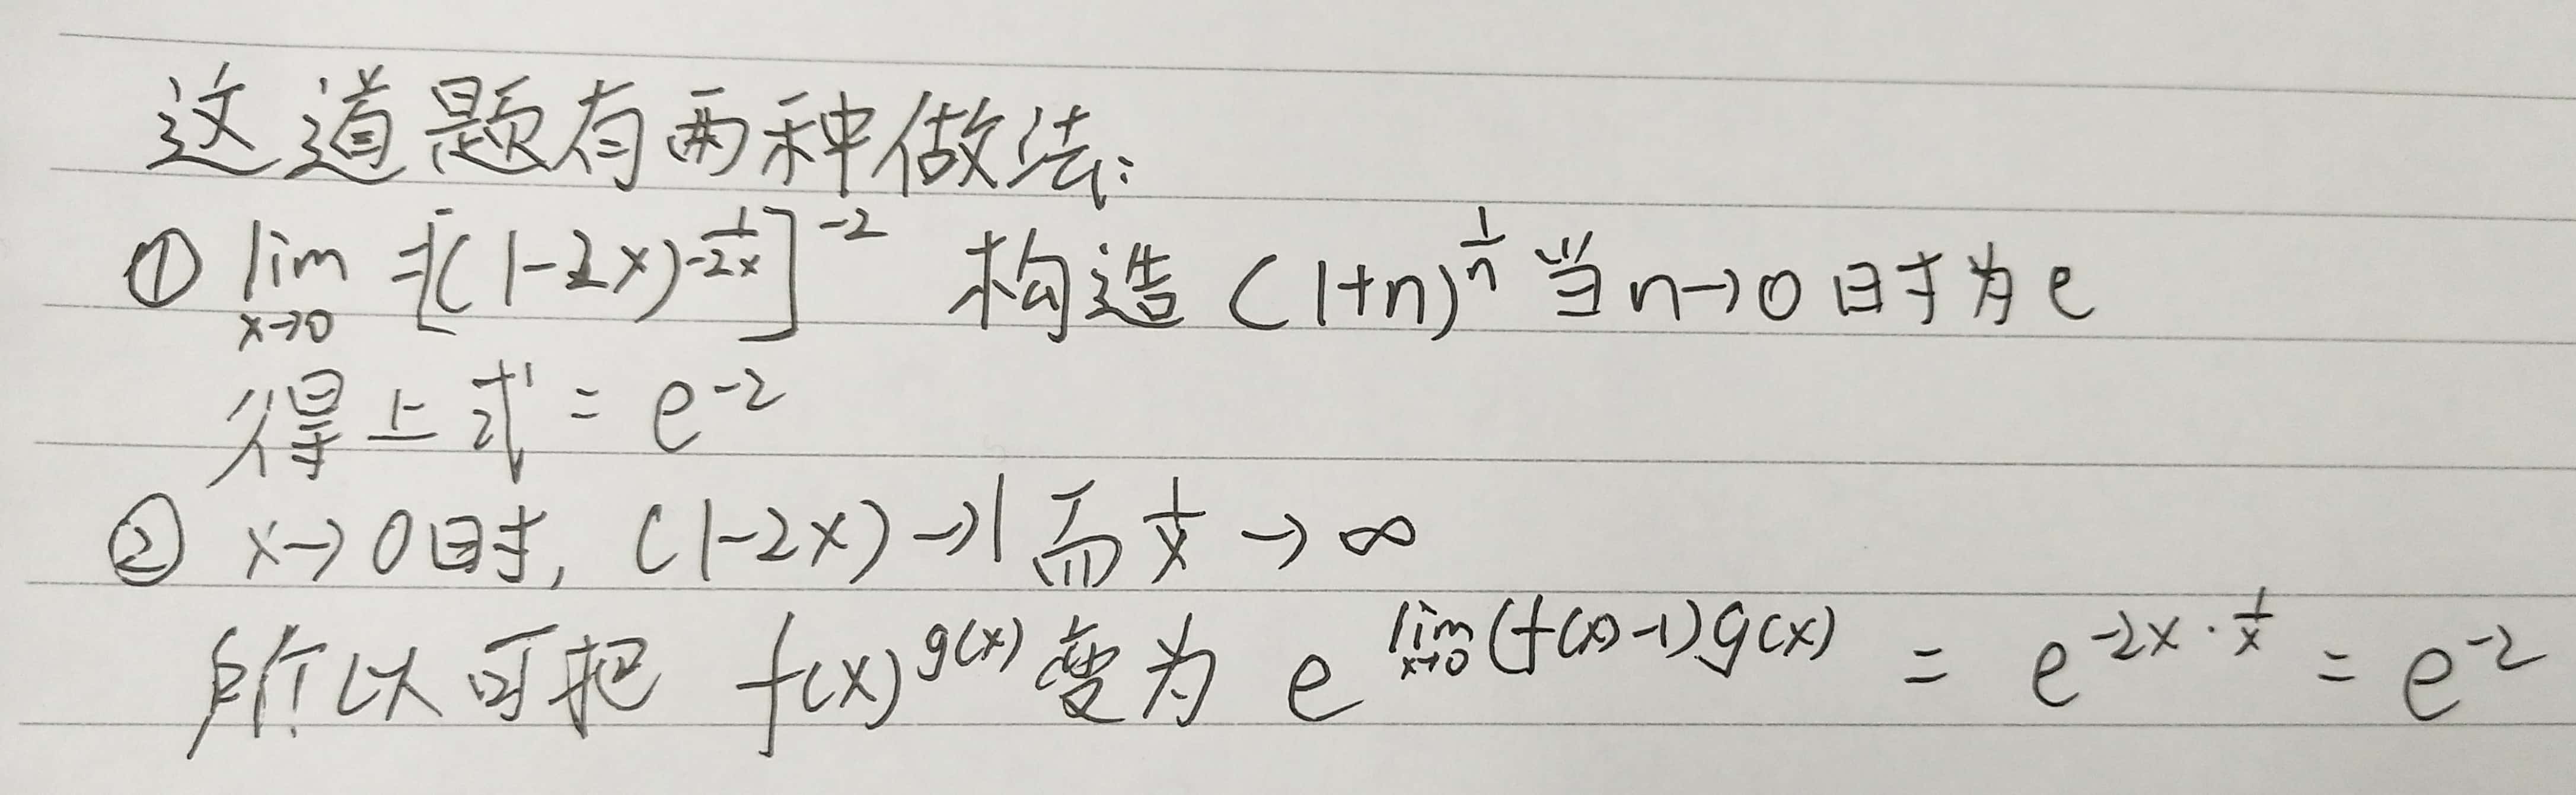 这道题有两种做法:
① lim x→0 =[(1-2x)^{\frac{1}{-2x}}]^{-2} 构造(1+n)^{\frac{1}{n}}当n→0时为e
得上式=e^{-2}
② x→0时,(1-2x)→1而\frac{1}{x}→∞
所以可把 f(x)^{g(x)}变为 e^{lim x→0 (f(x)-1)g(x)} = e^{-2x·\frac{1}{x}} = e^{-2}